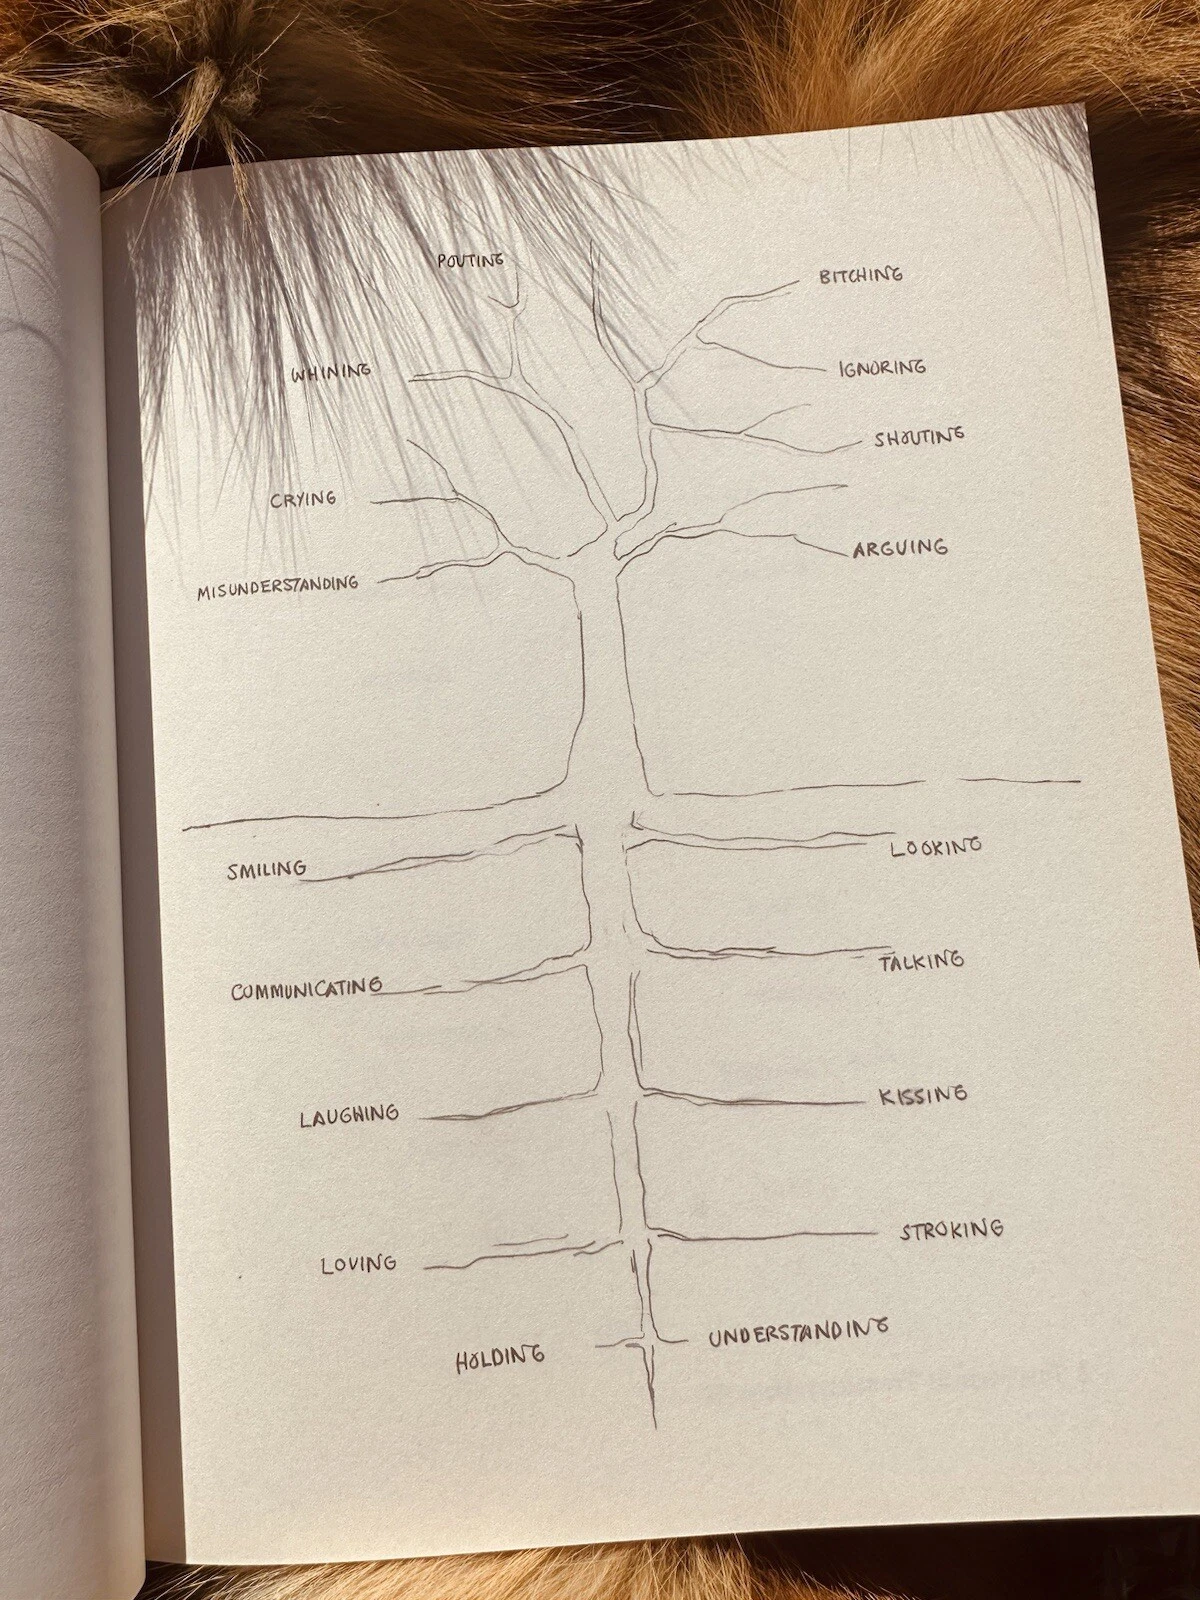 POUTING
BITCHING
WHINING
IGNORING
SHOUTING
CRYING
ARGUING
MISUNDERSTANDING
LOOKING
SMILING
TALKING
COMMUNICATING
KISSING
LAUGHING
STROKING
LOVING
UNDERSTANDING
HOLDING